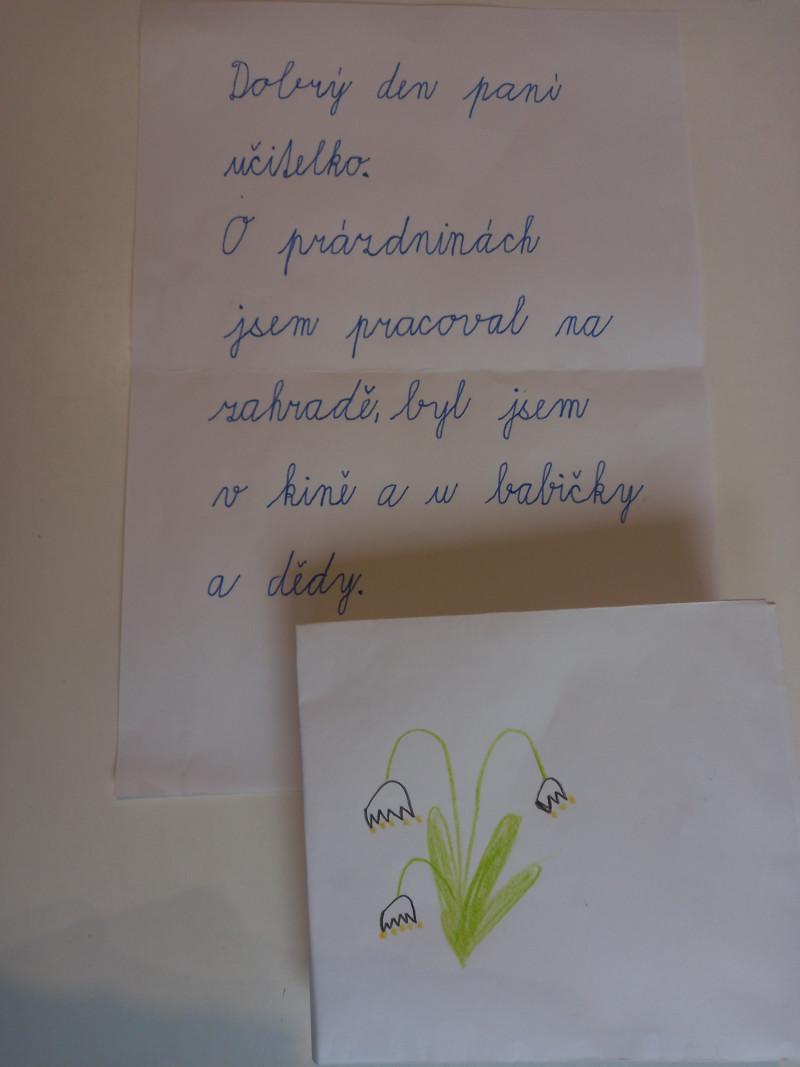 Dobrý den paní
učitelko.
O prázdninách
jsem pracoval na
zahradě, byl jsem
v kině a u babičky
a dědy.